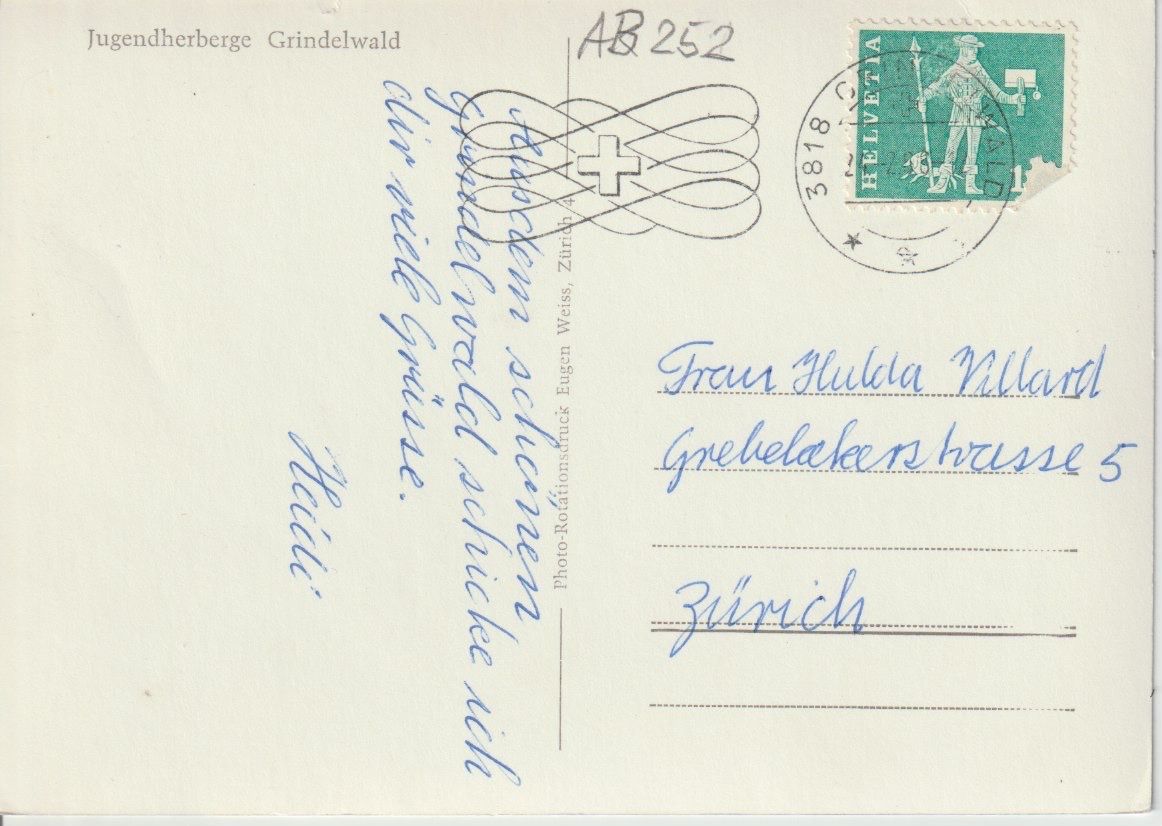 Jugendherberge Grindelwald
AB 252
HELVETIA
3818 GRINDELWALD
Aus dem schönen
Grindelwald schicke ich
dir viele Grüsse.
Heidi
Photo-Rotationsdruck Eugen Weiss, Zürich 4
Frau Hulda Villard
Grebelackerstrasse 5
Zürich